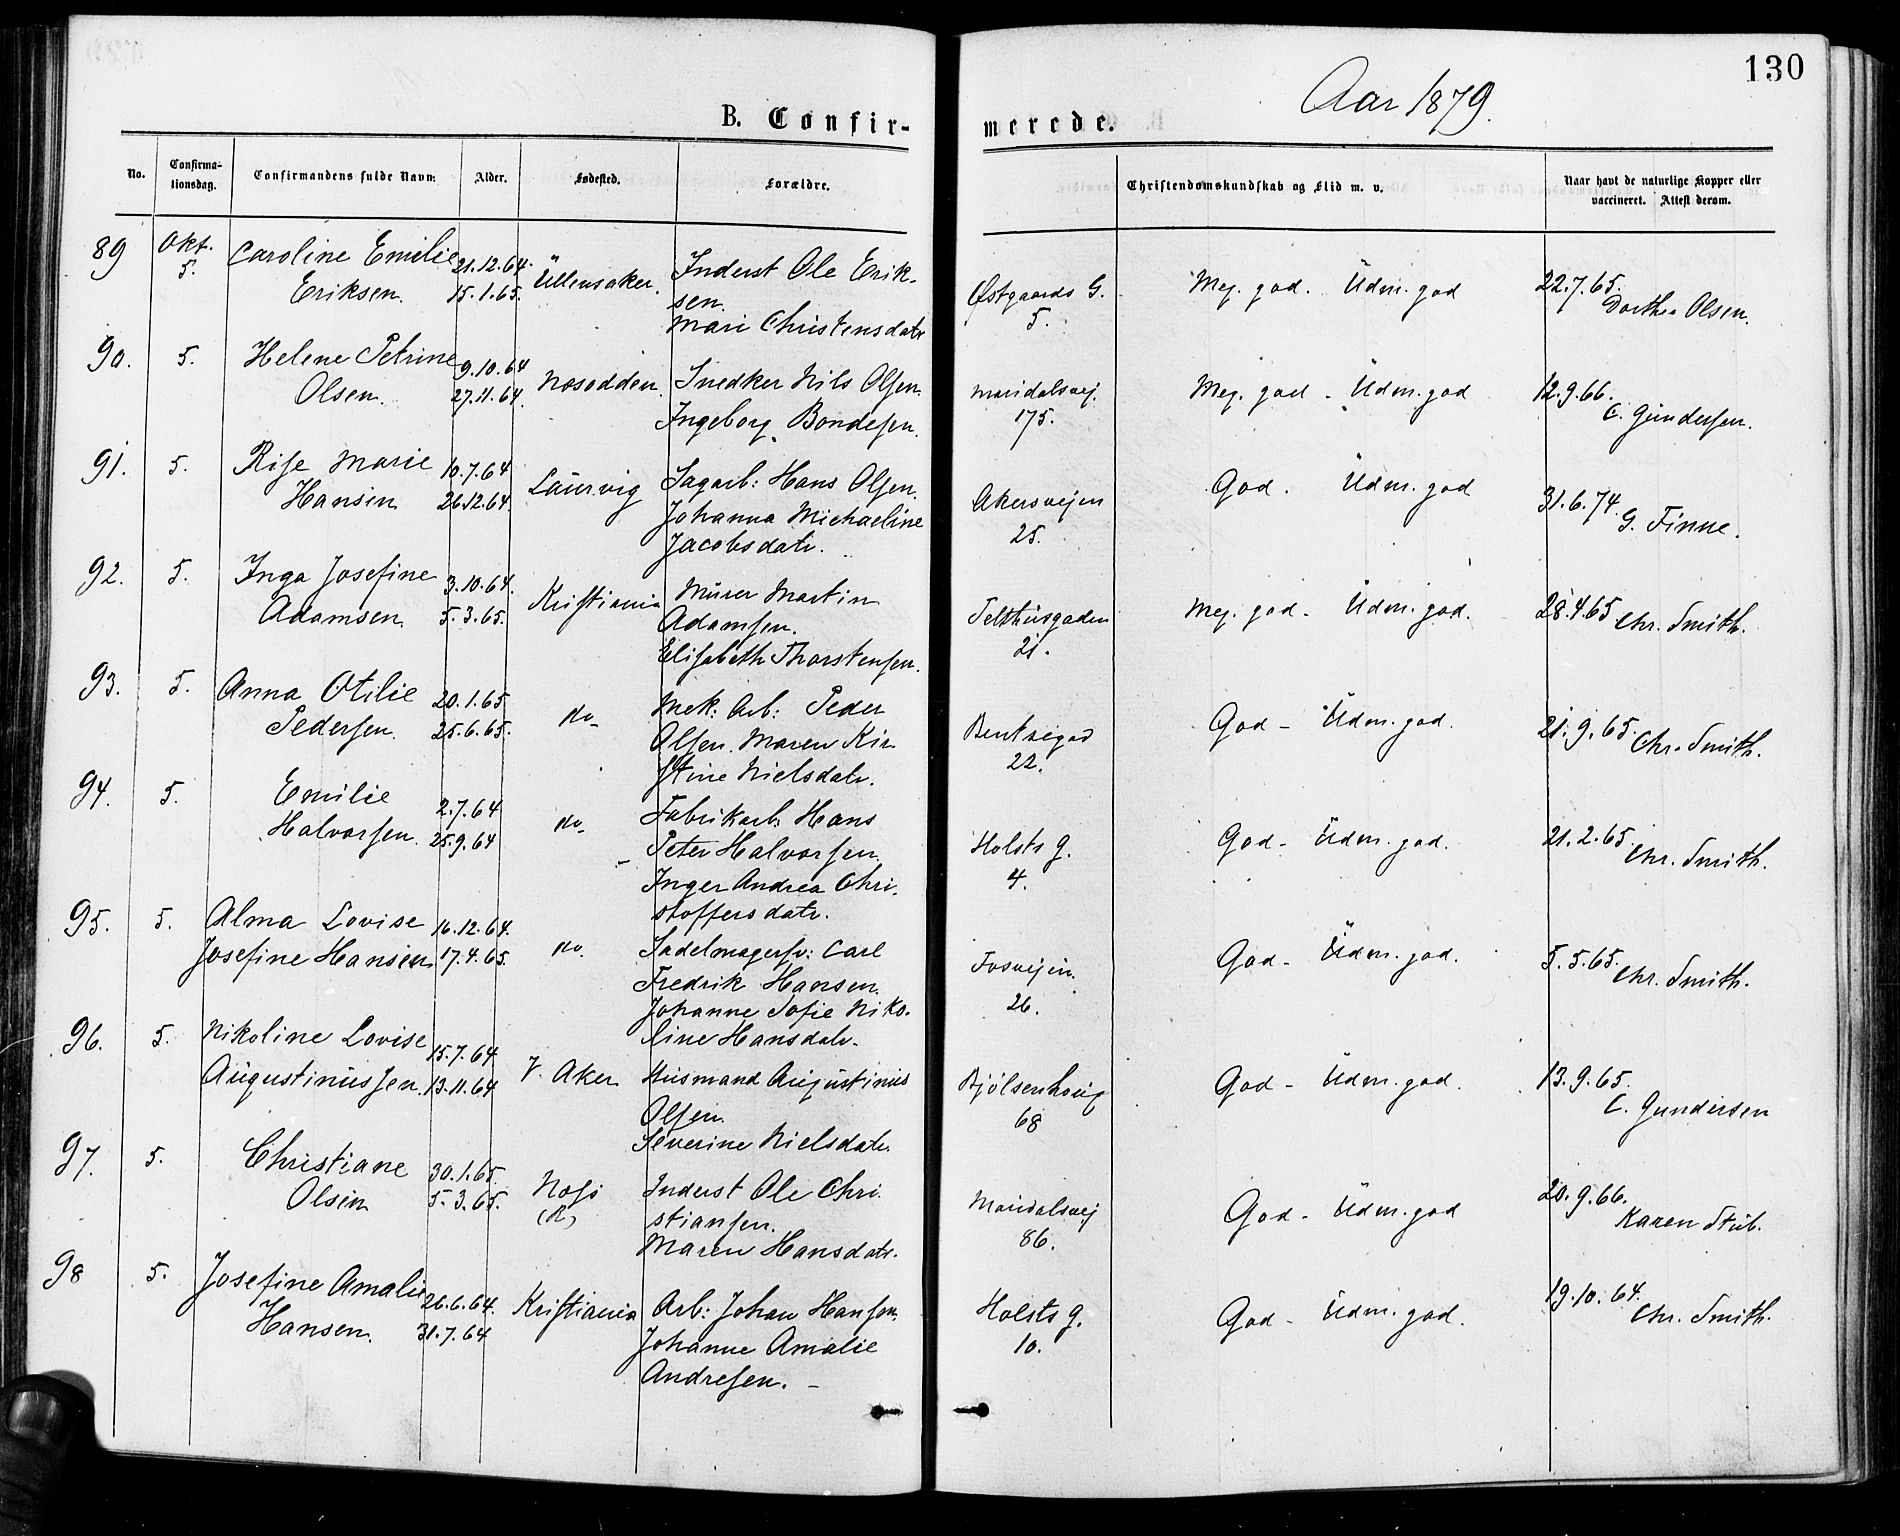 130
Aar 1879.
B. Confir-
merede.
No.
Confirma-
tionsdag.
Confirmandens fulde Navn:
Alder.
Fødested.
Forældre.
Christendomskundskab og Flid m. v.
Naar havt de naturlige Kopper eller
vaccineret. Attest derom.
89 Okt. 5. Caroline Emilie 21.12.64. Ullensaker. Inderst Ole Erik-
Eriksen. 15.1.65. sen.
Mari Christensdatr
Østgaards G. 5. Meg. god. Udm. god 22.7.65. Dorthea Olsen.
90. 5. Helene Petrine 9.10.64 Nesodden. Snedker Nils Olsen.
Olsen. 27.11.64. Ingeborg Bondesen.
Maridalsvej. 175. Meg. god - Udm. god 12.9.66. C. Gundersen.
91. 5. Rise Marie 10.7.64 Laurvig Sagarb: Hans Olsen.
Hansen 26.12.64. Johanna Michaeline
Jacobsdatr.
Akersvejen 25. God. Udm. god 31.6.74. G. Finne.
92. 5. Inga Josefine 3.10.64. Kristiania Murer Martin
Adamsen. 5.3.65. Adamsen.
Elisabeth Thorstensen.
Telthusgaden 21. Meg. god - Udm. god. 28.4.65 Chr. Smith.
93. 5. Anna Otilie 20.1.65 do- Mek: Arb: Peder
Pedersen. 25.6.65. Olsen. Maren Kir-
stine Nielsdatr.
Bentsegad 22. God - Udm. god. 21.9.65. Chr. Smith.
94. 5. Emilie 2.7.64 do- Fabrikarb: Hans
Halvorsen. 25.9.64 Peter Halvorsen.
Inger Andrea Chri-
stoffersdatr.
Holsts g. 4. God - Udm. god. 21.2.65. Chr. Smith.
95. 5. Alma Lovise 16.12.64. do. Sadelmagersv: Carl
Josefine Hansen 17.4.65. Fredrik Hansen.
Johanne Sofie Niko-
line Hansdatr.
Fosvejen. 26. God - Udm. god. 5.5.65. Chr. Smith.
96. 5. Nikoline Lovise 15.7.64 V. Aker Husmand Augustinus
Augustinussen. 13.11.64 Olsen.
Severine Nielsdatr.
Bjølsenhoug 68 God - Udm. god. 13.9.65. C. Gundersen
97. 5. Christiane 30.1.65. Næs Inderst Ole Chri-
Olsen 5.3.65. (R) stiansen.
Maren Hansdatr.
Maridalsvej 86. God - Udm. god 20.9.66. Karen Stub.
98 5. Josefine Amalie 26.6.64. Kristiania Arb: Johan Hansen.
Hansen. 31.7.64 Johanne Amalie
Andresen. -
Holsts g. 10. God - Udm. god. 19.10.64. Chr. Smith.